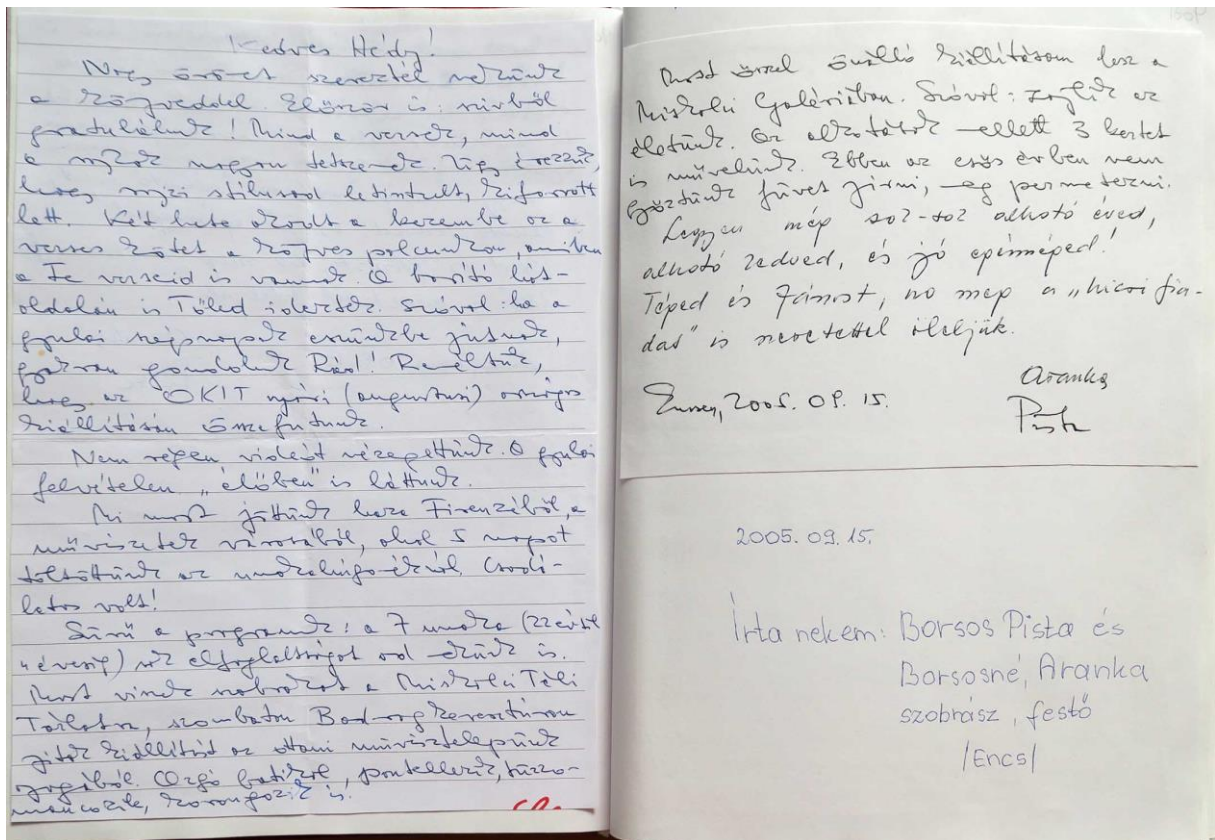 Kedves Hédy!
Nagy örömet szereztél nekünk
a könyveddel. Először is: szívből
gratulálunk! Mind a versek, mind
a rajzok nagyon tetszenek. Úgy érezzük,
hogy rajzi stílusod letisztult, kiforrott
lett. Két hete akadt a kezembe az a
verses kötet a könyves polcunkon, amiben
a Te verseid is vannak. A borító hát-
oldalán is Tőled idéztek. Szóval: ha a
gyulai szép napok eszünkbe jutnak,
gyakran gondolunk Rád! Reméltük,
hogy az OKIT nyári (augusztusi) országos
kiállításán összefutunk.
Nem régen videót nézegettünk. A gyulai
felvételen "élőben" is láttunk.
Mi most jöttünk haza Firenzéből, a
művészetek városából, ahol 5 napot
töltöttünk az unokahúgoméknál. Csodá-
latos volt!
Sűrű a programunk: a 7 unoka (22 évtől
4 évesig) sok elfoglaltságot ad nekünk is.
Most viszek szobrokat a Miskolci Téli
Tárlatra, szombaton Bodrogkeresztúron
nyitok kiállítást az ottani művésztelepünk
anyagából. batikol, tűzzo-
máncozik, korongozik is.
Most ősszel önálló kiállításom lesz a
Miskolci Galériában. Szóval: zajlik az
életünk. Az alkotások mellett 3 kertet
is művelünk. Ebben az esős évben nem
győztünk füvet nyírni, meg permetezni.
Legyen még sok-sok alkotó éved,
alkotó kedved, és jó egészséged!
Téged és Jánost, no meg a "kicsi fia-
dat" is szeretettel öleljük.
Aranka
Encs, 2005. 09. 15.
Pista
2005. 09. 15.
Írta nekem: Borsos Pista és
Borsosné, Aranka
szobrász, festő
/Encs/